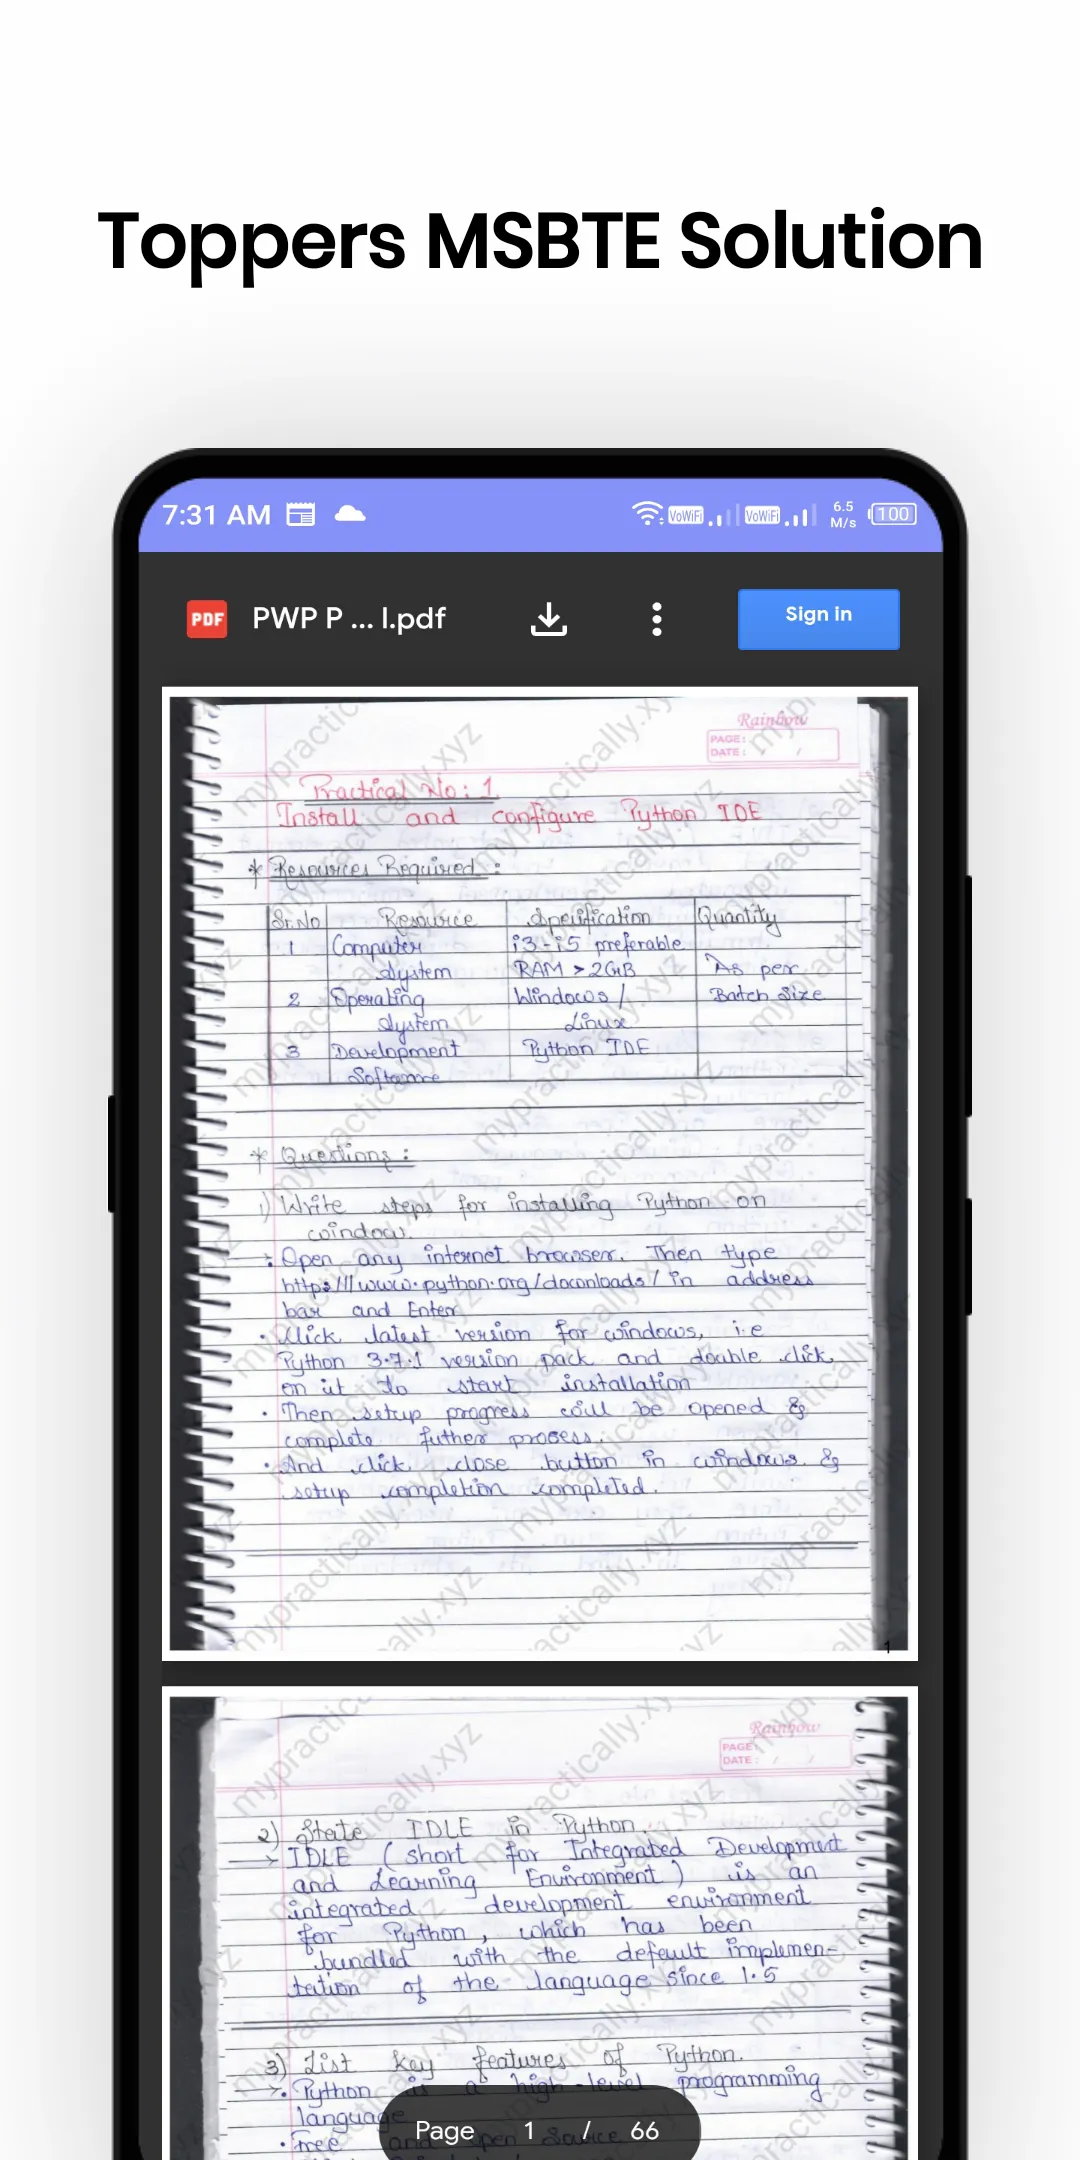 Toppers MSBTE Solution
7:31 AM
VoWiFi VoWiFi 6.5 M/s 100
PDF PWP P ... l.pdf Sign in
Rainbow
PAGE:
DATE: / /
Practical No: 1.
Install and configure Python IDE
* Resources Required :
Sr.No Resource Specification Quantity
1 Computer i3-i5 preferable
System RAM > 2GB As per
2 Operating Windows / Batch Size
System Linux
3 Development Python IDE
Software
* Questions :
1) Write steps for installing Python on
window.
• Open any internet browser. Then type
http:///www.python.org/downloads/ in address
bar and Enter
• Click latest version for windows, i.e
Python 3.7.1 version pack and double click
on it to start installation
• Then setup progress will be opened &
complete futher process.
• And click close button in windows &
setup completion completed.
mypractically.xyz
1
Rainbow
PAGE
DATE: / /
2) State IDLE in Python.
→ IDLE (short for Integrated Development
and Learning Environment) is an
integrated development environment
for Python, which has been
bundled with the default implemen-
tation of the language since 1.5
3) List key features of Python.
→• Python is a high-level programming
language
• Free and open source
Page 1 / 66